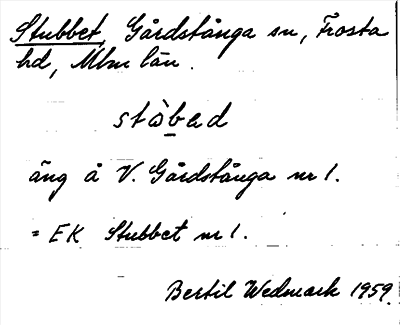 Stubbet, Gårdstånga sn, Frosta
hd, Mlm län.
stòbad
äng å V. Gårdstånga nr 1.
= EK Stubbet nr 1.
Bertil Wedmark 1959.